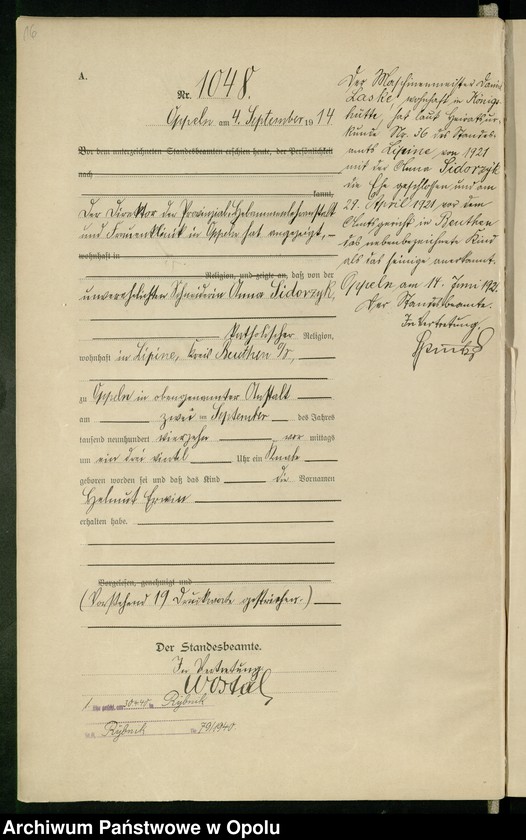 A.
Nr. 1048.
Oppeln am 4. September 1914.
Vor dem unterzeichneten Standesbeamten erschien heute, der Persönlichkeit
nach
kannt,
Der Direktor der Provinzial-Hebammenlehranstalt
und Frauenklinik in Oppeln hat angezeigt, –
wohnhaft in
Religion, und zeigte an, daß von der
unverehelichten Schneiderin Anna Sidorzyk,
katholischer Religion,
wohnhaft in Lipine, Kreis Beuthen O/S,
zu Oppeln in obengenannter Anstalt
am zwei ten September des Jahres
tausend neunhundert vierzehn vor mittags
um ein drei viertel Uhr ein Knabe
geboren worden sei und daß das Kind die Vornamen
Helmut Erwin
erhalten habe.
Vorgelesen, genehmigt und
(Vorstehend 19 Druckworte gestrichen.)
Der Standesbeamte.
In Vertretung.
Wostal
Rybnik
Rybnik Nr. 79/1940.
Der Maschinenmeister Daniel
Laske, wohnhaft in Königs-
hütte, hat laut Heiratsur-
kunde Nr. 36 des Standes-
amts Lipine von 1921
mit der Anna Sidorzyk
die Ehe geschlossen und am
29. April 1921 vor dem
Amtsgericht in Beuthen
das nebenbezeichnete Kind
als das seinige anerkannt.
Oppeln am 14. Juni 1921.
Der Standesbeamte.
In Vertretung.
Archiwum Państwowe w Opolu